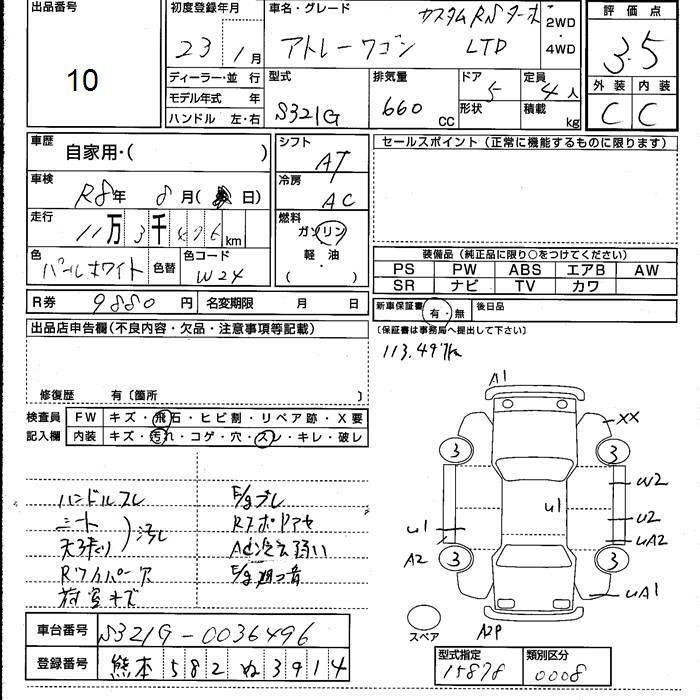 出品番号
10
初度登録年月
23年1月
車名・グレード
カスタムRSターボ
アトレーワゴン LTD
2WD
4WD
評価点
3.5
外装 内装
C C
ディーラー・並行
モデル年式 年
ハンドル 左・右
型式
S321G
排気量
660 CC
ドア
5
形状
定員
4人
積載
kg
車歴
自家用・( )
シフト
AT
セールスポイント (正常に機能するものに限ります)
車検
R8年 8月( 日)
冷房
AC
走行
11万3千496km
燃料
ガソリン
軽・油
( )
色
パールホワイト
色替
色コード
W24
装備品(純正品に限り○をつけてください)
PS PW ABS エアB AW
SR ナビ TV カワ
R券 9880円
名変期限 月 日
新車保証書 有・無
後日品
(保証書は事務局へ提出して下さい)
113.497km
出品店申告欄(不良内容・欠品・注意事項等記載)
修復歴 有〔箇所 〕
検査員
記入欄
FW キズ・飛石・ヒビ割・リペア跡・X要
内装 キズ・汚れ・コゲ・穴・スレ・キレ・破レ
ハンドルスレ
シート
天張り
)汚れ
Rワイパー穴
荷室キズ
E/gブレ
ACガス弱い
A1
XX
3 3
W2
U1
U1
U2
UA2
A2
3 3
UA1
A2P
スペア
車台番号 S321G-0036496
登録番号 熊本 582 ぬ 3914
型式指定
15878
類別区分
0008